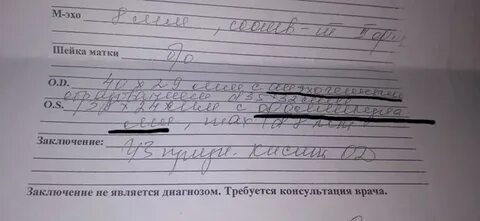 М-эхо 8 мм, соотв-т
Шейка матки б/о
O.D. 40 x 29 мм с анэхогенным
O.S. 38 x 24 мм с фолликула
ми, max d 8 мм
Заключение: УЗ призн. кисты OD
Заключение не является диагнозом. Требуется консультация врача.